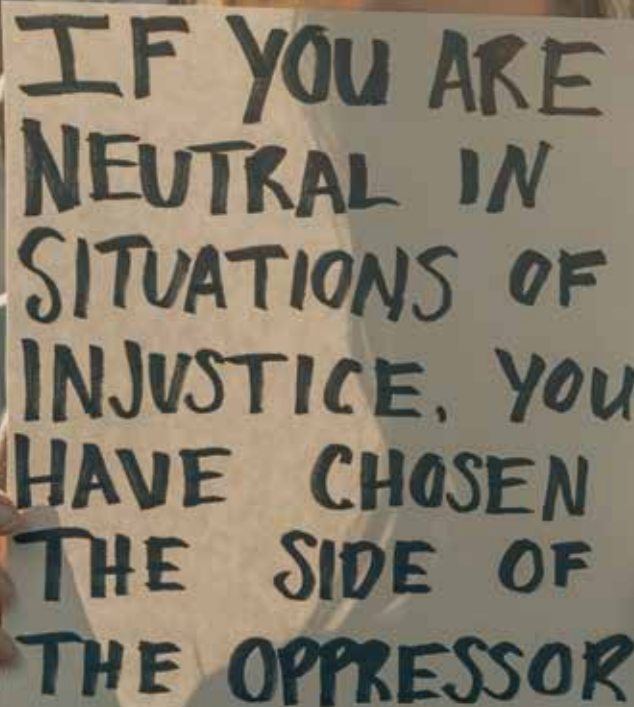 IF YOU ARE
NEUTRAL IN
SITUATIONS OF
INJUSTICE, YOU
HAVE CHOSEN
THE SIDE OF
THE OPPRESSOR